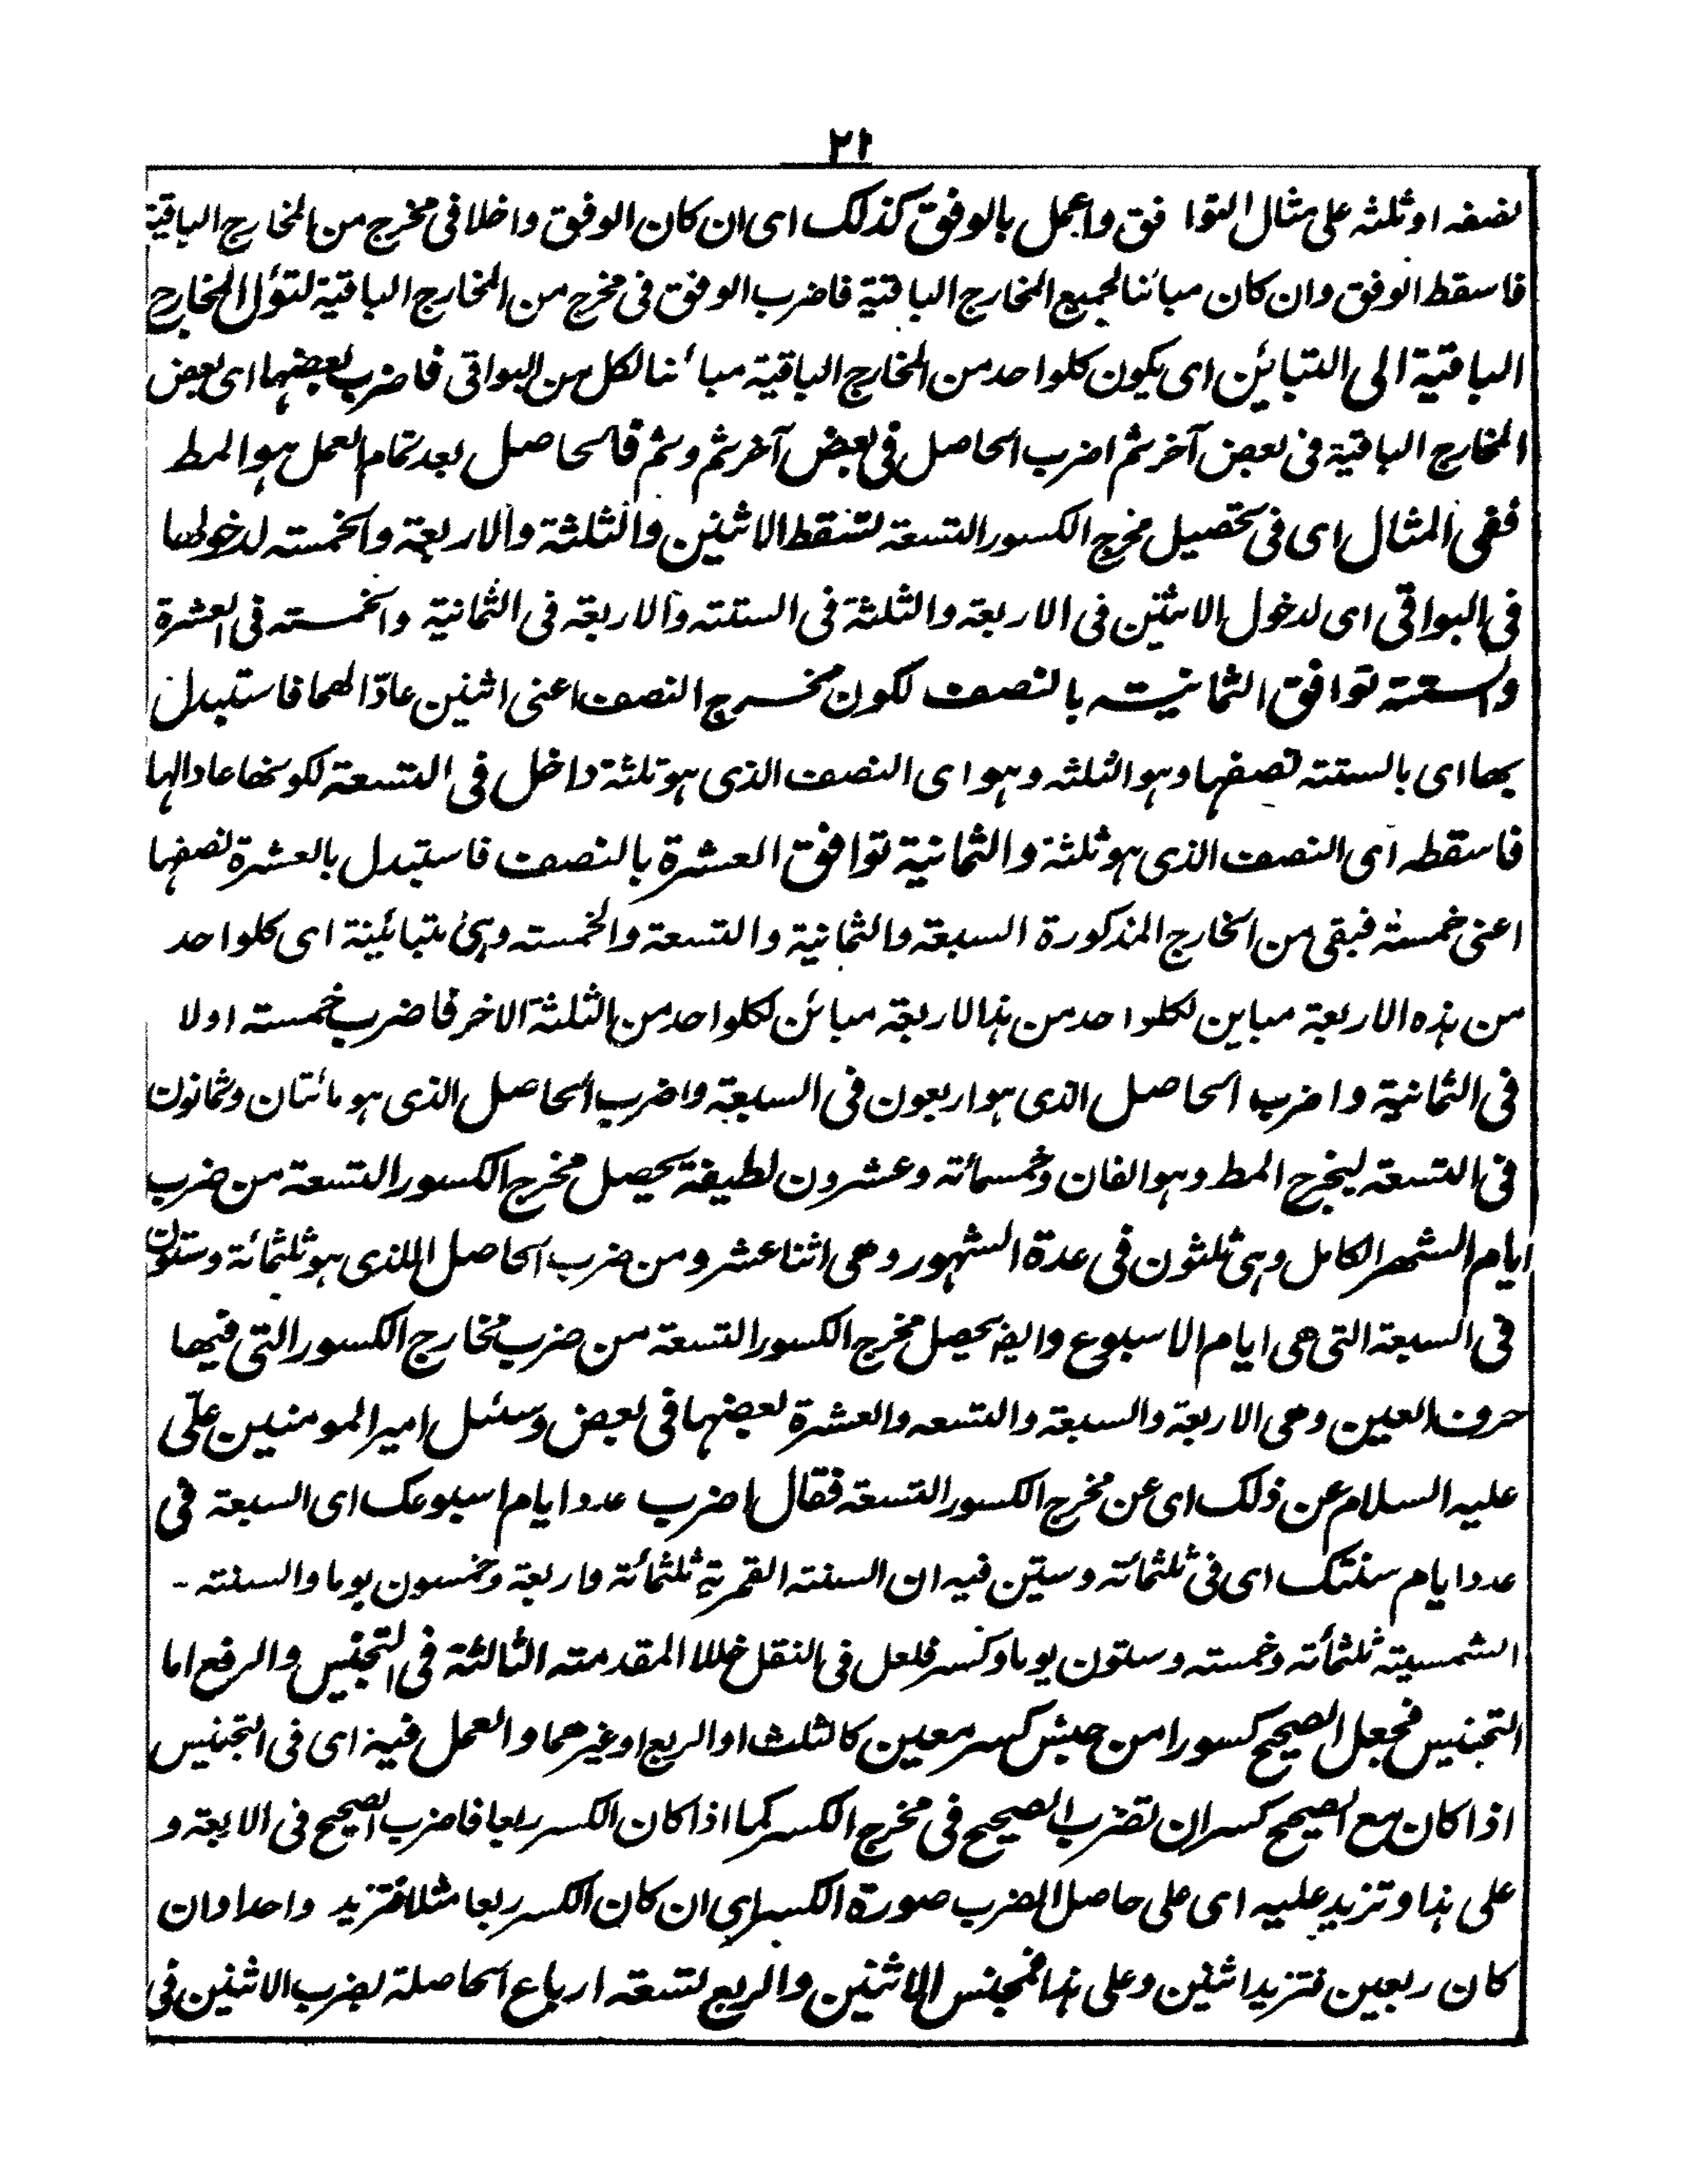 ٢١
نصفه او ثلثه على مثال التوا فق واعمل بالوفق كذلك اى ان كان الوفق داخلا فى مخرج من المخارج الباقية
فاسقط الوفق وان كان مبائنا لجميع المخارج الباقية فاضرب الوفق فى مخرج من المخارج الباقية لتؤل المخارج
الباقية الى التبائن اى يكون كلواحد من المخارج الباقية مبائنا لكل من البواقى فاضرب بعضها اى بعض
المخارج الباقية فى بعض آخر ثم اضرب الحاصل فى بعض آخر ثم وثم فالحاصل بعد تمام العمل هو المط
ففى المثال اى فى تحصيل مخرج الكسور التسعة لتسقط الاثنين والثلثة والاربعة والخمسته لدخولها
فى البواقى اى لدخول الاثنين فى الاربعة والثلثة فى الستته والاربعة فى الثمانية والخمسته فى العشرة
والستته توافق الثمانيته بالنصف لكون مخرج النصف اعنى اثنين عادّا لهما فاستبدل
بها اى بالستته نصفها وهو الثلثه وهو اى النصف الذى هو ثلثة داخل فى التسعة لكونها عادا لها
فاسقطه اى النصف الذى هو ثلثة والثمانية توافق العشرة بالنصف فاستبدل بالعشرة نصفها
اعنى خمسته فبقى من المخارج المذكورة السبعة والثمانية والتسعة والخمسته وهى متبائنة اى كلواحد
من هذه الاربعة مباين لكلواحد من هذا الاربعة مبائن لكلواحد من الثلثة الاخر فاضرب خمسته اولا
فى الثمانية واضرب الحاصل الذى هو اربعون فى السبعة واضرب الحاصل الذى هو مائتان وثمانون
فى التسعة ليخرج المط وهو الفان وخمسمائته وعشرون لطيفة يحصل مخرج الكسور التسعة من ضرب
ايام الشهر الكامل وهى ثلثون فى عدة الشهور وهى اثنا عشر ومن ضرب الحاصل اللذى هو ثلثمائة وستون
فى السبعة التى هى ايام الاسبوع وايضا يحصل مخرج الكسور التسعة من ضرب مخارج الكسور التى فيها
حرف العين وهى الاربعة والسبعة والتسعه والعشرة بعضها فى بعض وسئل امير المومنين علىّ
عليه السلام عن ذلك اى عن مخرج الكسور التسعة فقال اضرب عدد ايام اسبوعك اى السبعة فى
عدد ايام سنتك اى فى ثلثمائته وستين فيه ان السنته القمرية ثلثمائة واربعة وخمسون يوما والسنته -
الشمسيته ثلثمائته وخمسته وستون يوما وكسر فلعل فى النقل خللا المقدمته الثالثة فى التجنيس والرفع اما
التجنيس فجعل الصحيح كسورا من جنس كسر معين كالثلث او الربع او غيرهما والعمل فيه اى فى التجنيس
اذا كان مع الصحيح كسر ان تضرب الصحيح فى مخرج الكسر كما اذا كان الكسر ربعا فاضرب الصحيح فى الابعة و
على هذا وتزيد عليه اى على حاصل الضرب صورة الكسر اى ان كان الكسر ربعا مثلا فتزيد واحدا وان
كان ربعين فتزيد اثنين وعلى هذا فمجنس الاثنين والربع لتسعة ارباع الحاصلة بضرب الاثنين فى